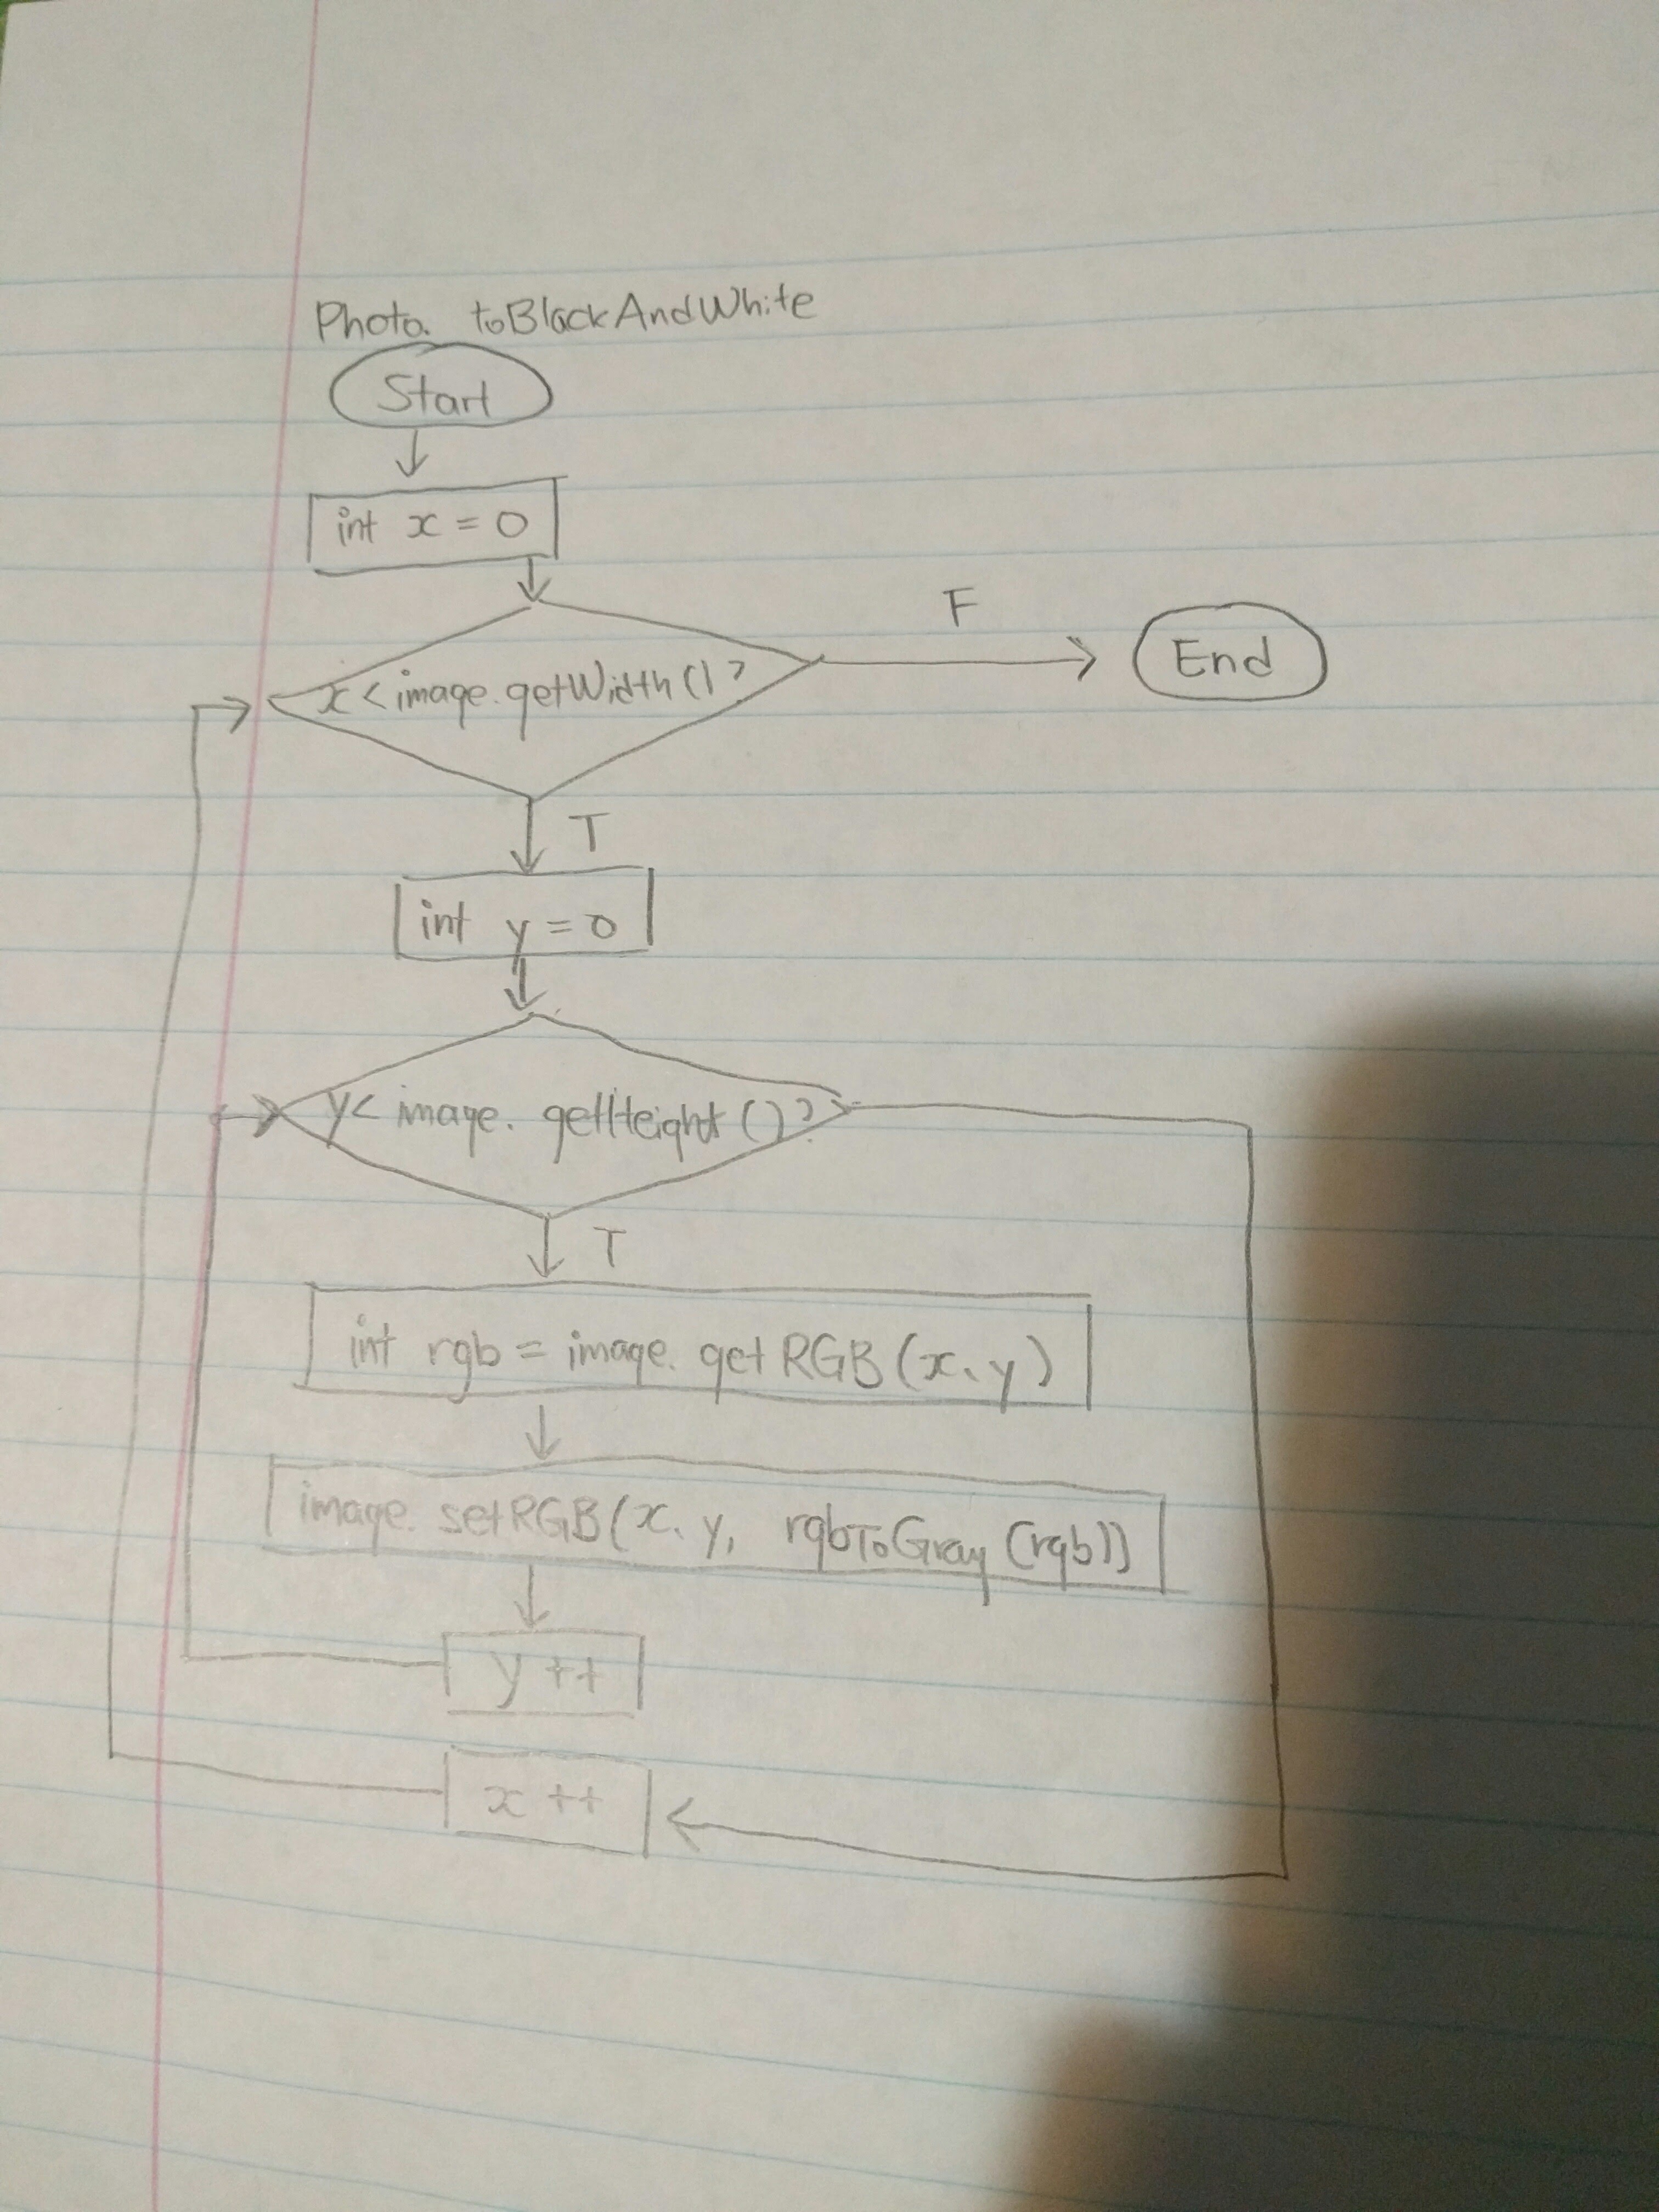 Photo. toBlackAndWhite
Start
int x = 0
x < image.getWidth()?
F
End
T
int y = 0
y < image. getHeight()?
T
int rgb = image. getRGB(x, y)
image. setRGB(x, y, rgbToGray(rgb))
y ++
x ++